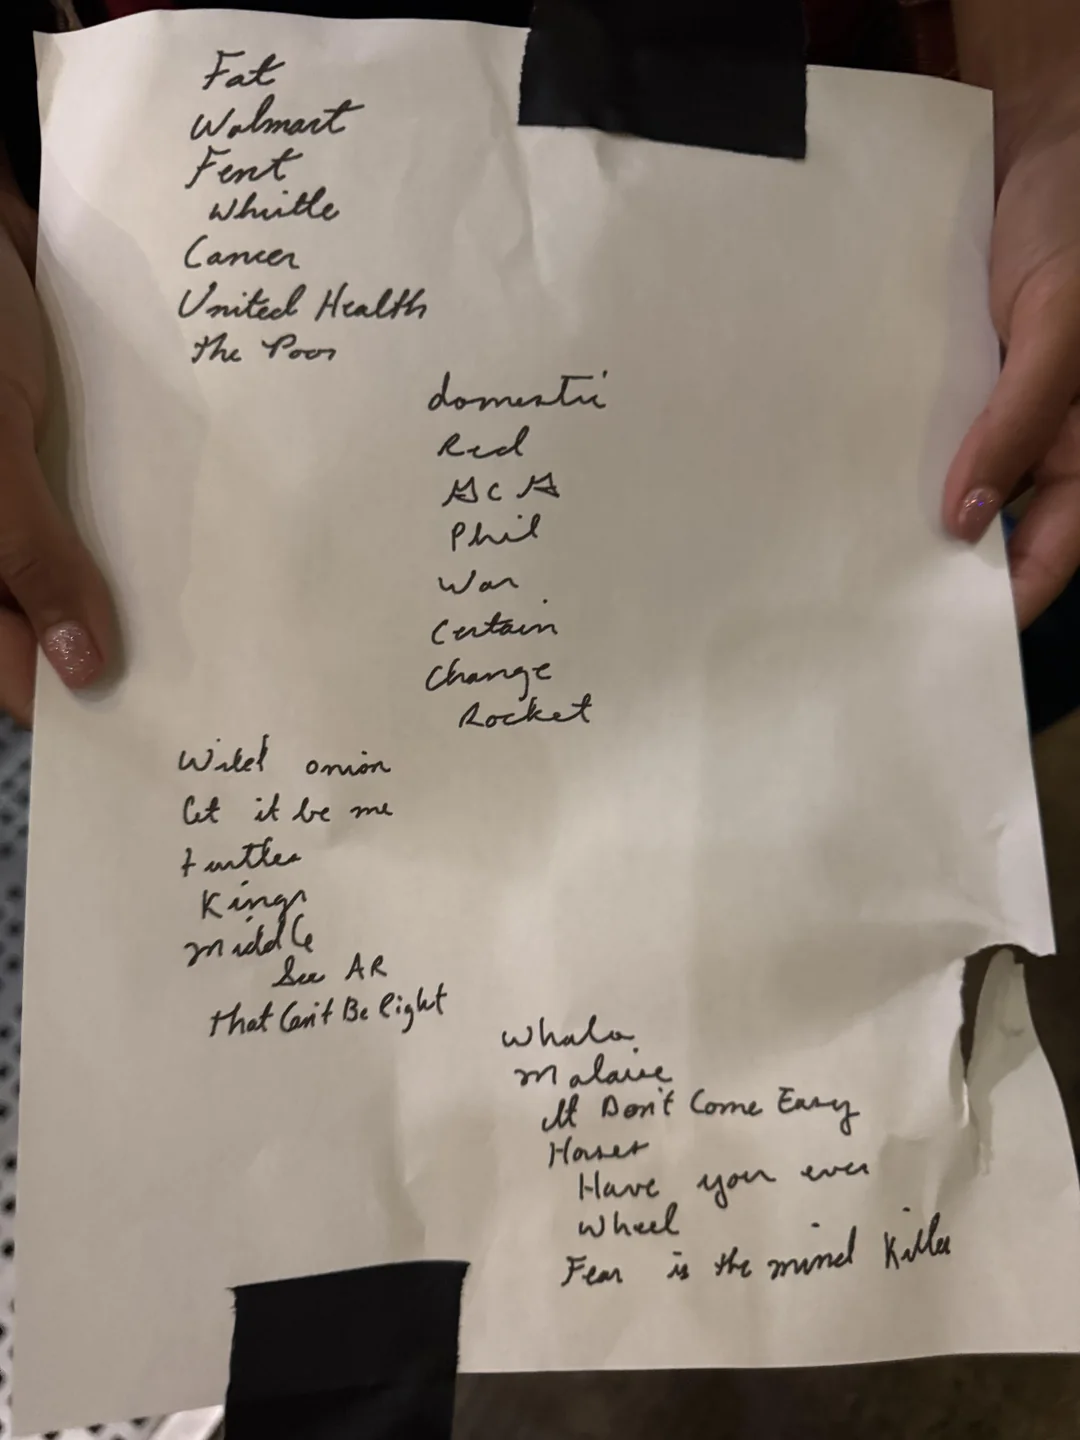 Fat
Walmart
Fent
Whistle
Cancer
United Health
the Poor
domestic
Red
Phil
War
Certain
Change
Rocket
Wild onion
Let it be me
turtles
Kings
middle
See AR
That Can't Be Right
Malaise
It Don't Come Easy
Horses
Have you ever
Wheel
Fear is the mind Killer